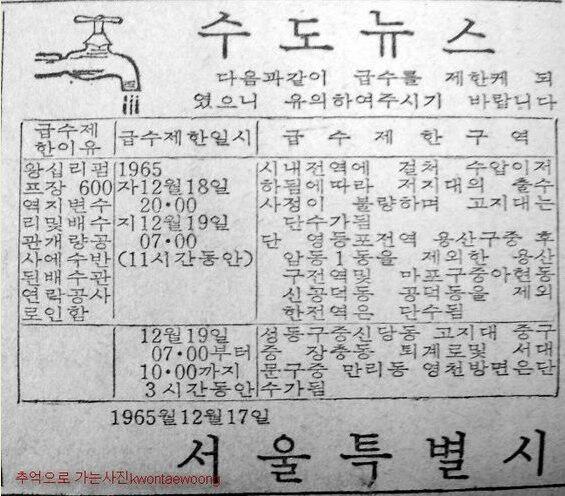 수도뉴스
다음과같이 급수를 제한케 되
였으니 유의하여주시기 바랍니다
급수제
한이유
급수제한일시
급수제한구역
왕십리펌
프장 600
역지변수
리및배수
관개량공
사에수반
된배수관
연락공사
로인함
1965
자12월18일
20·00
지12월19일
07·00
(11시간동안)
시내전역에 걸처 수압이저
하됨에따라 저지대의 출수
사정이 불량하며 고지대는
단수가됨
단 영등포전역 용산구중 후
암동1동을 제외한 용산
구전역및 마포구중아현동
신공덕동 공덕동을 제외
한전역은 단수됨
12월19일
07·00부터
10·00까지
3시간동안
성동구중신당동 고지대 중구
중 장충동 퇴계로및 서대
문구중 만리동 영천방면은단
수가됨
1965월12월17일
서울특별시
추억으로 가는사진kwontaewoong